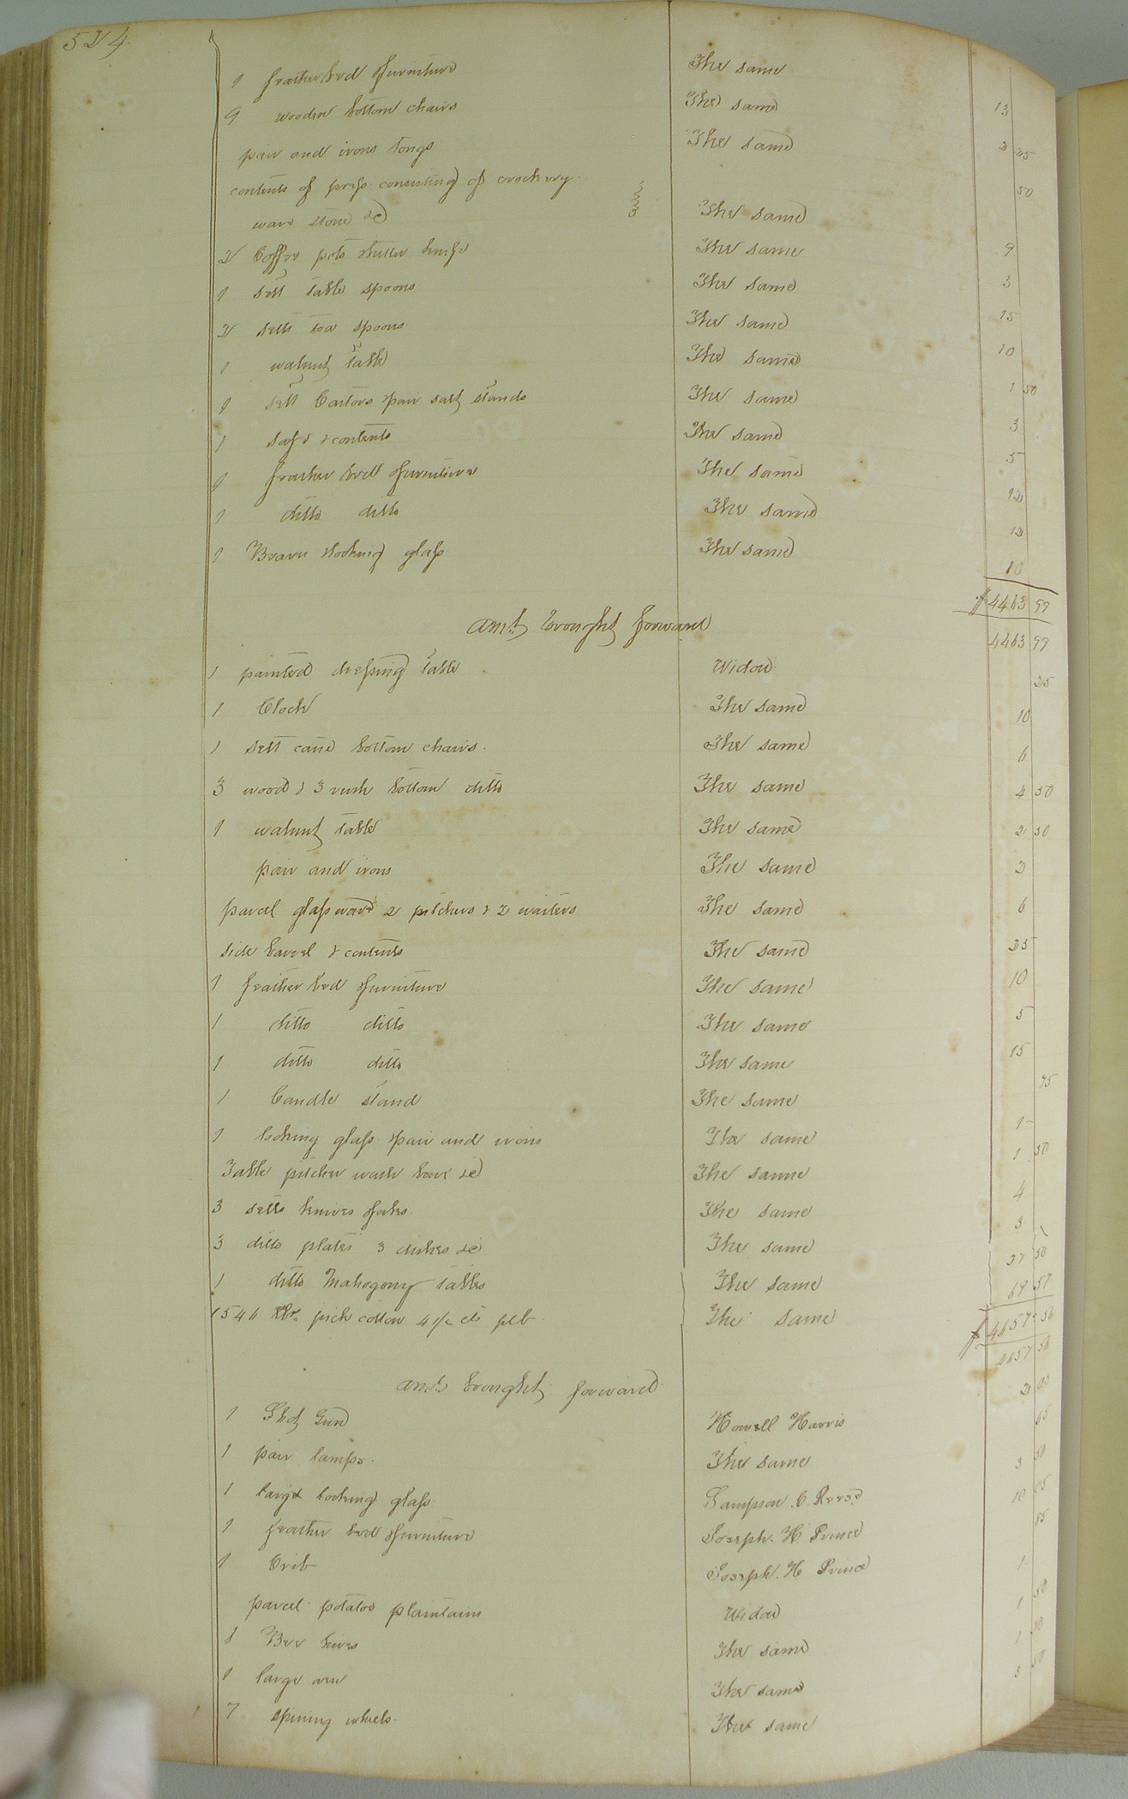 524
1 feather bed & furniture The same 13
9 wooden bottom chairs The same 2 25
pair and irons tongs The same 50
contents of press consisting of crockery
ware stone &c The same 9
2 Coffee pots & butter knife The same 3
1 sett table spoons The same 15
2 setts tea spoons The same 10
1 walnut Table The same 1 50
1 sett Castors & pair salt stands The same 3
1 safe & contents The same 5
1 feather bed & furniture The same 12
1 ditto ditto The same 12
1 Bearu & looking glass The same 10
$4463 99
amt brought forward 4463 99
1 painted dressing Table Widow 25
1 Clock The same 10
1 sett cane bottom chairs The same 6
3 wood & 3 rush bottom ditto The same 4 50
1 walnut table The same 2 50
pair and irons The same 2
parcel glass ware 2 pitchers & 2 waiters The same 6
side board & contents The same 25
1 feather bed & furniture The same 10
1 ditto ditto The same 5
1 ditto ditto The same 15
1 Candle stand The same 75
1 looking glass & pair and irons The same 1
Table pitcher wash bowl &c The same 1 50
3 setts knives & forks The same 4
3 ditto plates 3 dishes &c The same 3
1 ditto Mahogony tables The same 37 50
1546 lbs. pick cotton 4½ cts plb The same 69 57
$4657 56
amt brought forward 4657 56
1 Shot Gun Howell Harris 2
1 pair lamps The same
1 large looking glass Sampson C. Reese 3 50
1 feather bed & furniture Joseph. H. Prince 10
1 Crib Joseph. H Prince
parcel potatoe plantains Widow 1
1 Bee hives The same 1 50
1 large The same 1
7 spining wheels The same 3 50